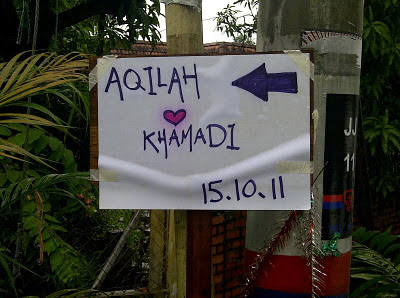 AQILAH
KHAMADI
15.10.11
JJ
11